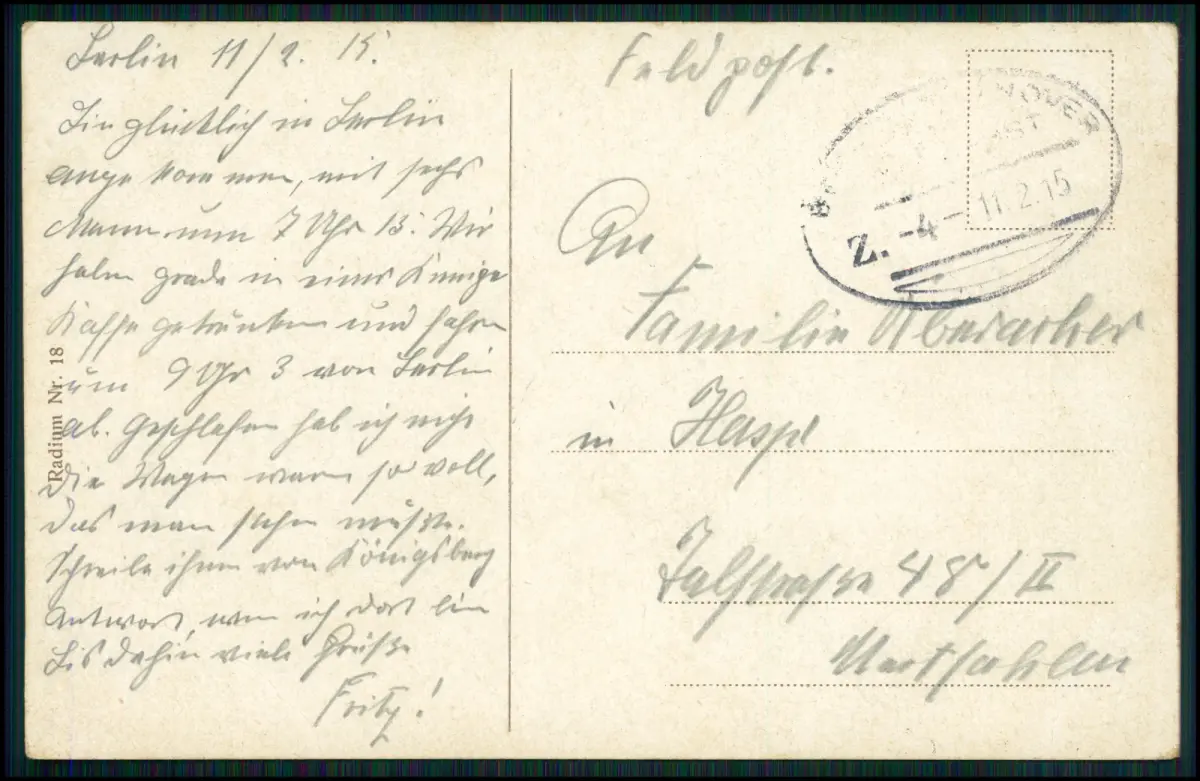 Berlin 11/2. 15.
Bin glücklich in Berlin
ange kommen, mit sechs
Mann um 7 Uhr 13. Wir
haben grade in einer Kneipe
Kaffe getrunken und fahren
um 9 Uhr 3 von Berlin
ab. Geschlafen hab ich nicht
die Wagen waren so voll,
das man stehen mußte.
Schreibe ihnen von Königsberg
Antwort, wen ich dort bin
Bis dahin viele Grüße
Fritz!
Radium Nr. 18
Feldpost.
NOVER
Z. -4- 11.2.15
An
Familie Aberacker
in Haspe
Talstraße 48/II
Westfahlen